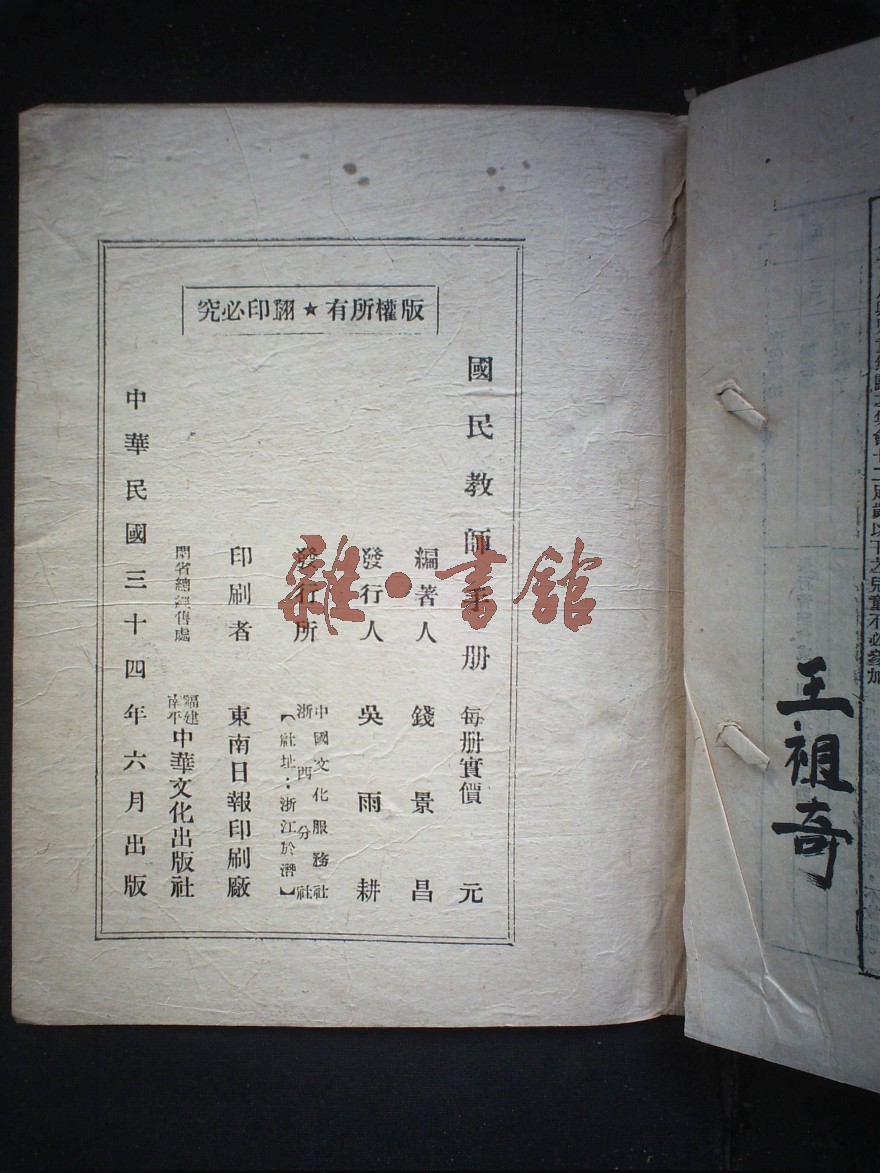 版權所有★翻印必究
國民教師手册
每册實價 元
編著人 錢景昌
發行人 吳雨耕
發行所 中國文化服務社浙西分社
【社址：浙江於潛】
印刷者 東南日報印刷廠
閩省總經售處 福建南平 中華文化出版社
中華民國三十四年六月出版
雜·書館
王祖奇